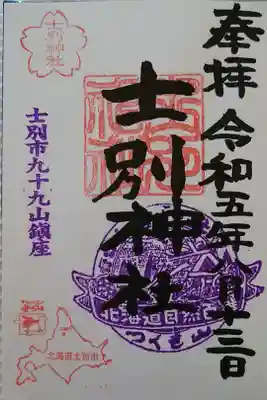 奉拝 令和五年八月十三日
士別神社
士別神社
士別市九十九山鎮座
北海道自然百
つくも山
北海道士別市